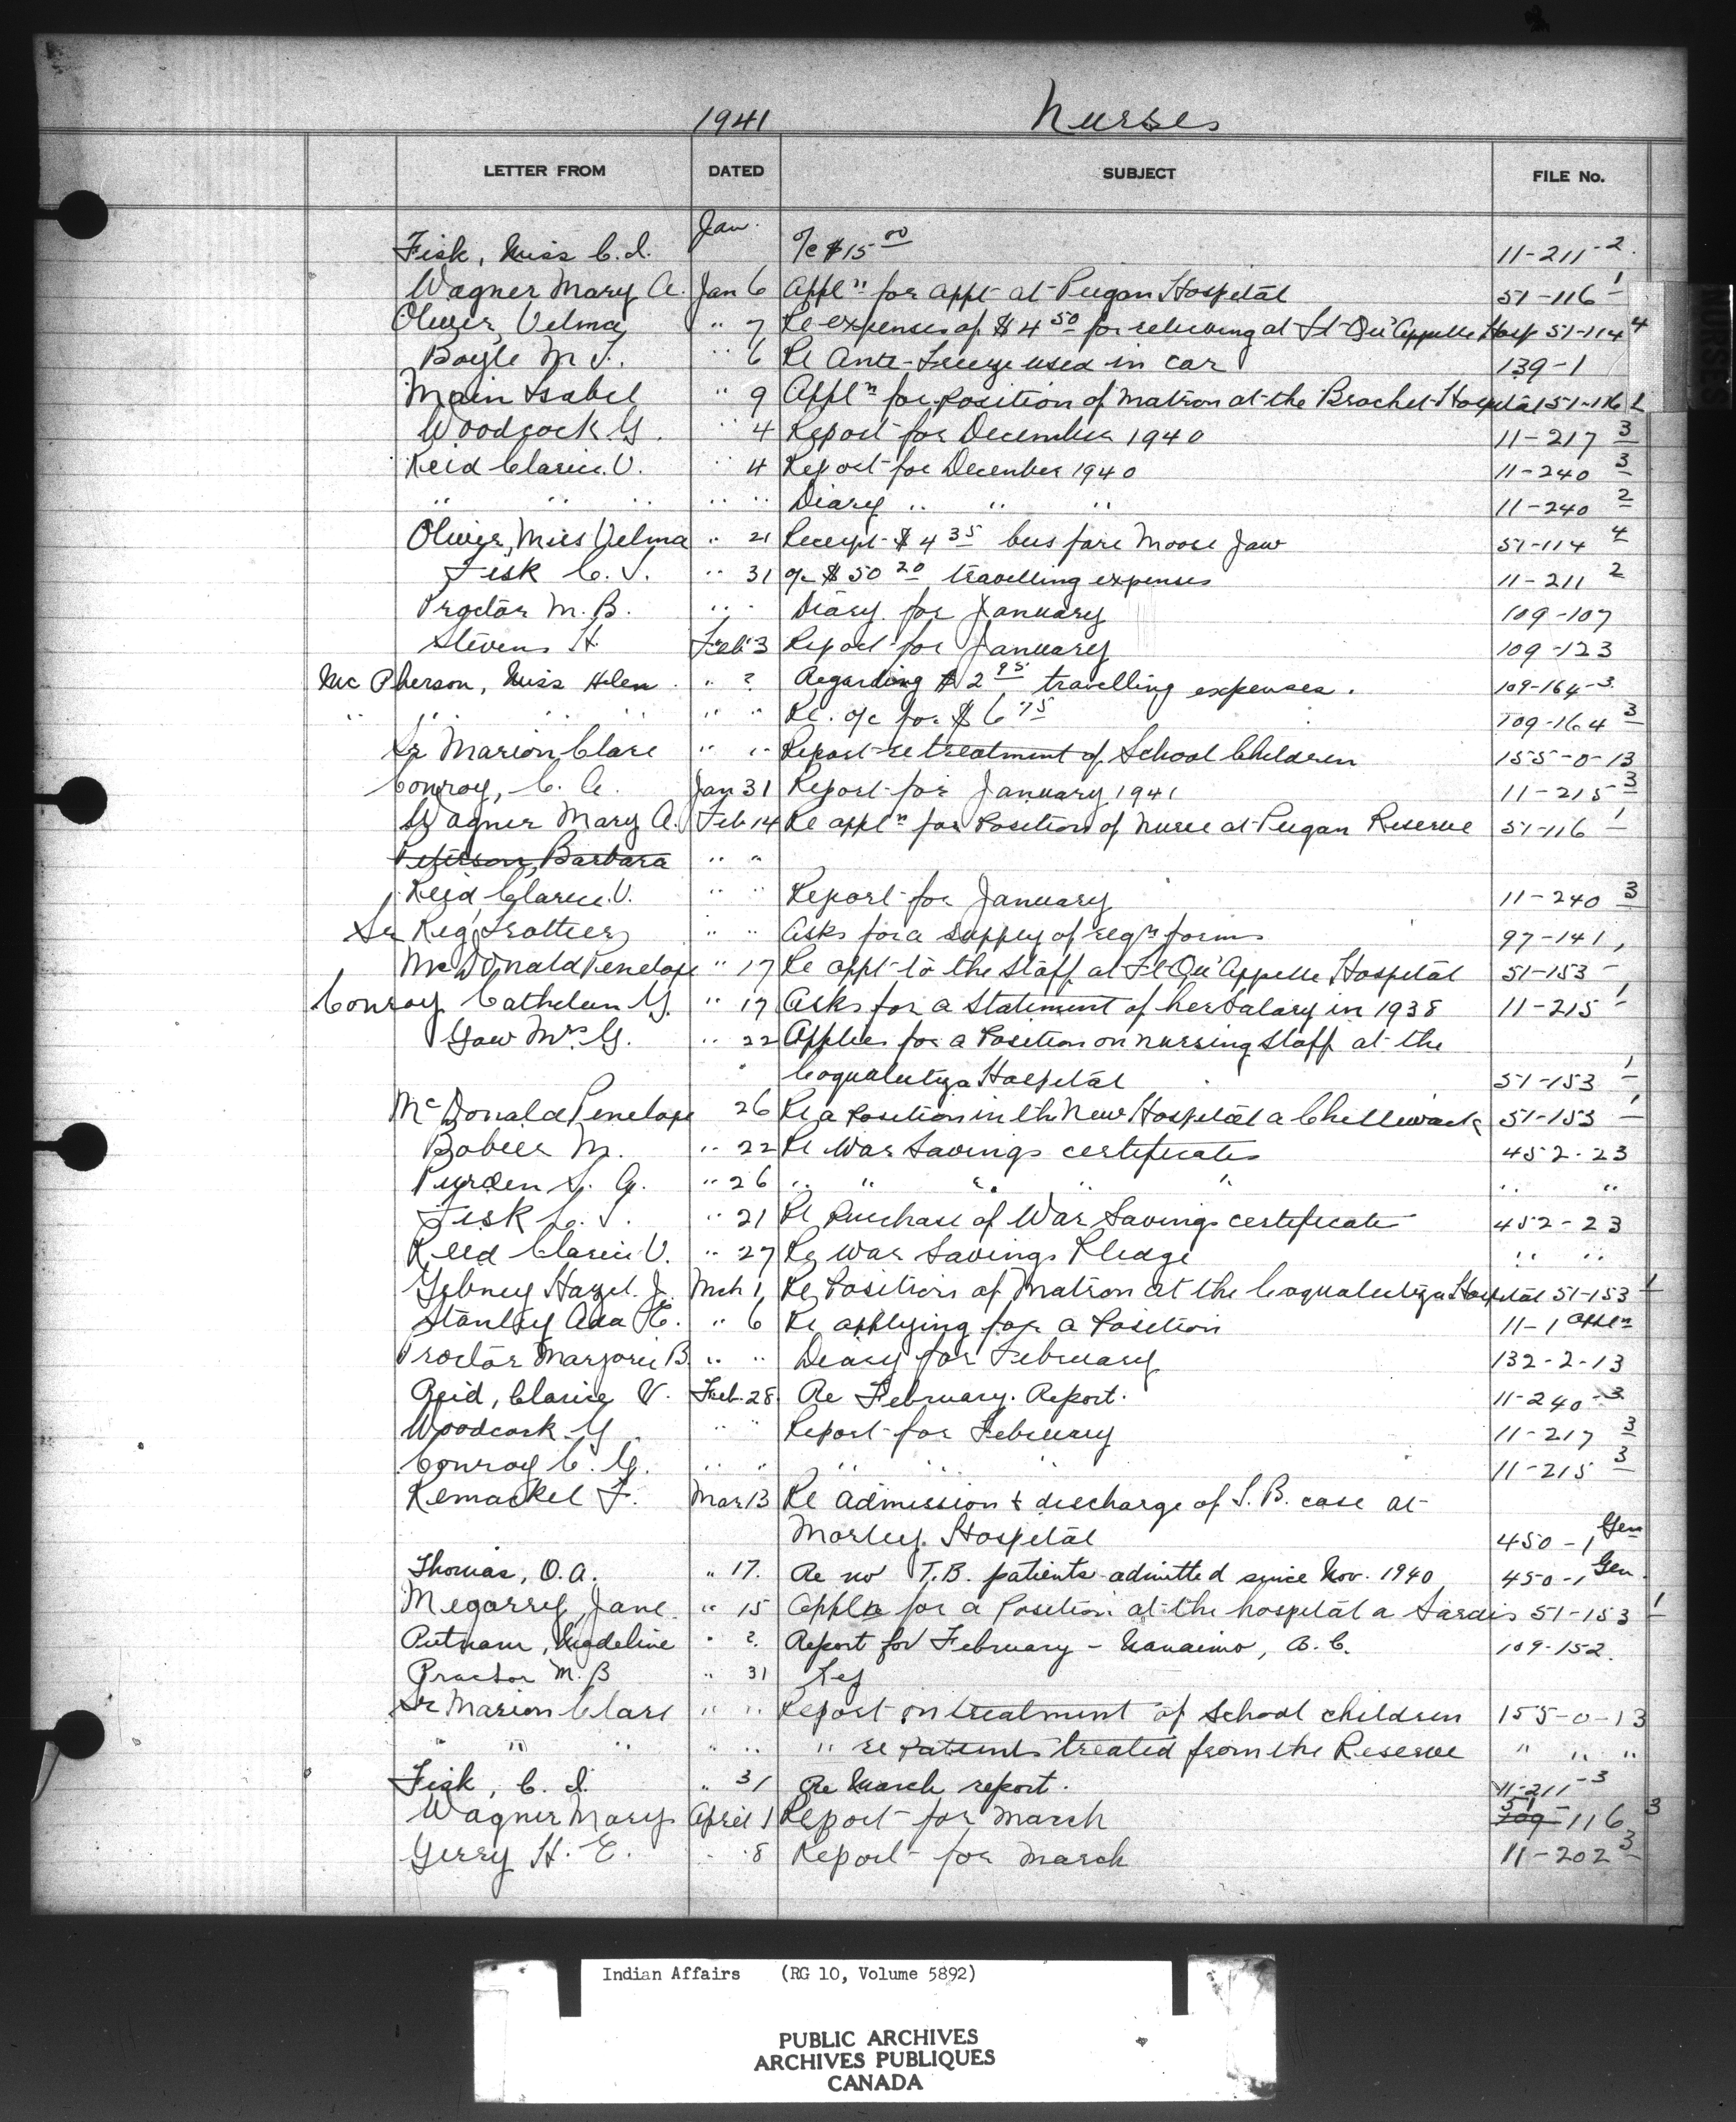 1941 Nurses
LETTER FROM DATED SUBJECT FILE No.
Jan.
Fisk, Miss C. I. a/c $15 00 11-211-2.
Wagner Mary A. Jan 6 Appl n for appt at Peigan Hospital 51-116 1
Oliver, Velma " 7 Re expenses of $4 50 for relieving at Ft Qu'Appelle Hosp 51-114 4
Boyle M J. " 6 Re Ante-Freeze used in car 139-1
Main Isabel " 9 Appl n for position of Matron at the Brochet Hospital 51-116
Woodcock G. " 4 Report for December 1940 11-217 3
Reid Clarice V. " 4 Report for December 1940 11-240 3
" " " " " Diary " " " 11-240 2
Oliver, Miss Velma " 21 Receipt $4 35 bus fare Moose Jaw 51-114 4
Fisk C. I. " 31 a/c $50 20 travelling expenses 11-211 2
Proctor M. B. " " Diary for January 109-107
Stevens H. Feb 3 Report for January 109-123
McPherson, Miss Helen " ? Regarding $2 95 travelling expenses. 109-164-3
" " " " " " Re. a/c for $6 75 109-164 3
Sr Marion Clare " " Report re treatment of School Children 155-0-13
Conroy, C. G. Jan 31 Report for January 1941 11-215 3
Wagner Mary A. Feb 14 Re appl n for Position of Nurse at Peigan Reserve 51-116 1
Peterson, Barbara " "
Reid Clarice V. " " Report for January 11-240 3
Sr Reg Trottier " " Asks for a supply of reg n forms 97-141,
McDonald Penelope " 17 Re appt to the Staff at Ft Qu'Appelle Hospital 51-153 -
Conroy Cathleen G. " 17 Asks for a Statement of her Salary in 1938 11-215 1
Gow Mrs. G. " 22 Applies for a Position on nursing Staff at the
Coqualeetza Hospital 51-153 1
McDonald Penelope 26 Re a Position in the New Hospital a Chilliwack 51-153 1
Bobier M. " 22 Re War Savings certificates 452-23
Purden S. G. " 26 " " " " " " "
Fisk C. I. " 21 Re Purchase of War Savings certificate 452-23
Reid Clarice V. " 27 Re War Savings Pledge " "
Gibney Hazel. J. Mch 1, Re Position of Matron at the Coqualeetza Hospital 51-153 1
Stanley Ada E. " 6 Re applying for a Position 11-1 Appln
Proctor Marjorie B. " " Diary for February 132-2-13
Reid, Clarice V. Feb. 28. Re February. Report. 11-240-3
Woodcock G " " Report for February 11-217 3
Conroy C. G. " " " " " 11-215 3
Kemackel F. Mar 13 Re Admission & discharge of T. B. case at
Morley Hospital 450-1 Gen
Thomas, O. A. " 17. Re no T.B. patients admitted since Nov. 1940 450-1 Gen.
Megarry, Jane. " 15 Appln for a Position at the hospital a Sardis 51-153 1
Putnam, Madeline " ?. Report for February - Nanaimo, B. C. 109-152.
Proctor M. B " 31
Sr Marion Clare " " Report on treatment of School children 155-0-13
" " " " " " re Patients treated from the Reserve " " "
Fisk, C. I. " 31 Re March report. 11-211-3
Wagner Mary April 1 Report for March 109 51-116 3
Gerry H. E. " 8 Report for March 11-202 3
NURSES
Indian Affairs (RG 10, Volume 5892)
PUBLIC ARCHIVES
ARCHIVES PUBLIQUES
CANADA